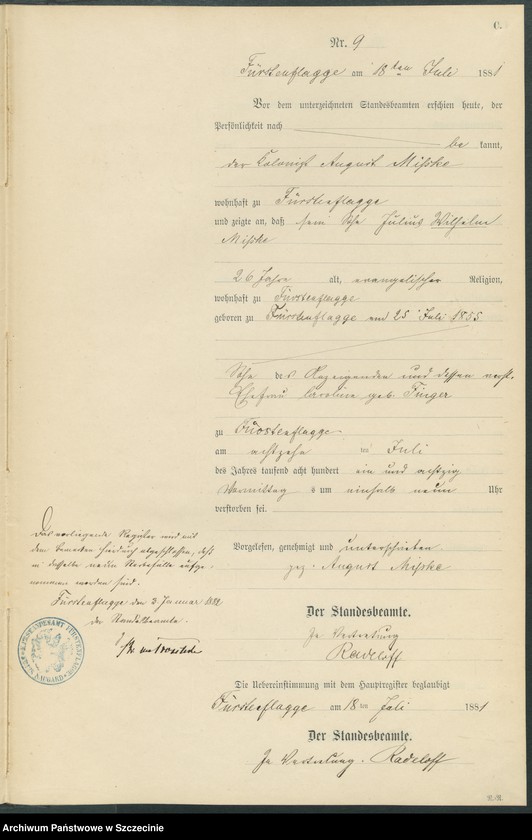 C.
Nr. 9
Fürstenflagge am 18ten Juli 1881
Vor dem unterzeichneten Standesbeamten erschien heute, der
Persönlichkeit nach
be kannt,
der Colonist August Mißke
wohnhaft zu Fürstenflagge
und zeigte an, daß sein Sohn Julius Wilhelm
Mißke
26 Jahre alt, evangelischer Religion,
wohnhaft zu Fürstenflagge
geboren zu Fürstenflagge am 25 Juli 1855
Sohn des Anzeigenden und dessen
Ehefrau Caroline geb. Finger
zu Fürstenflagge
am achtzehn ten Juli
des Jahres tausend acht hundert ein und achtzig
Vormittags um einhalb neun Uhr
verstorben sei.
Vorgelesen, genehmigt und unterschrieben
gez. August Mißke
Der Standesbeamte.
In Vertretung
Radeloff
Die Uebereinstimmung mit dem Hauptregister beglaubigt
Fürstenflagge am 18ten Juli 1881
Der Standesbeamte.
In Vertretung. Radeloff
Das vorliegende Register wird mit
dem Bemerken hierdurch abgeschlossen, daß
in desselben neun Sterbefälle aufge-
nommen worden sind.
Fürstenflagge den 3. Januar 1882
der Standesbeamte.
Archiwum Państwowe w Szczecinie